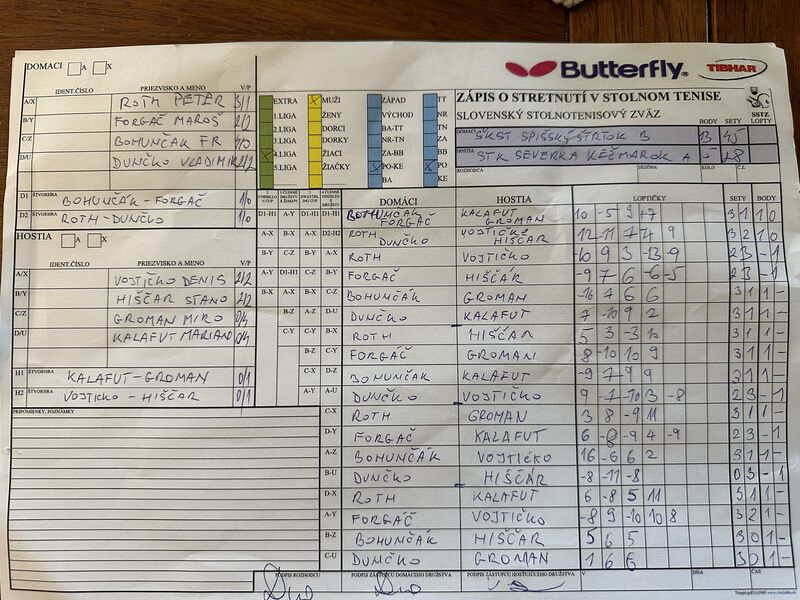 DOMACI A X
Butterfly
TIBHAR
IDENT.ČÍSLO PRIEZVISKO A MENO V/P
A/X ROTH PETER 3/1
B/Y FORGÁČ MAROŠ 2/2
C/Z BOHUNČÁK FR 4/0
D/U DUNČKO VLADIMIR 2/2
D1 ŠTVORHRA BOHUNČÁK-FORGÁČ 1/0
D2 ŠTVORHRA ROTH-DUNČKO 1/0
HOSTIA A X
IDENT.ČÍSLO PRIEZVISKO A MENO V/P
A/X VOJTIČKO DENIS 2/2
B/Y HIŠČAR STANO 2/2
C/Z GROMAN MIRO 0/4
D/U KALAFUT MARIAN 0/4
H1 ŠTVORHRA KALAFUT-GROMAN 0/1
H2 ŠTVORHRA VOJTICKO - HIŠČAR 0/1
PRIPOMIENKY, POZNÁMKY
EXTRA X MUŽI ZÁPAD TT
1.LIGA ŽENY VÝCHOD NR
2.LIGA DORCI BA-TT TN
3.LIGA DORKY NR-TN ZA
X 4.LIGA ŽIACI ZA-BB BB
5.LIGA ŽIAČKY X PO-KE X PO
BA KE
ZÁPIS O STRETNUTÍ V STOLNOM TENISE
SLOVENSKÝ STOLNOTENISOVÝ ZVÄZ
SSTZ
BODY SETY LOPTY
DOMÁCI ŠKST SPIŠSKÝ ŠTVRTOK B
HOSTIA STK SEVERKA KEŽMAROK A 5 28
ROZHODCA SEZÓNA KOLO Č.L.
DOMÁCI HOSTIA LOPTIČKY SETY BODY
D1-H1 A-Y D1-H1 D1-H1 BOHUNČÁK FORGÁČ KALAFUT GROMAN 10 -5 9 +7 3 1 1 0
A-X B-X A-X D2-H2 ROTH DUNČKO VOJTIČKO HIŠČAR 12 -11 7 -4 9 3 2 1 0
B-Y C-Z B-Y A-X ROTH VOJTIČKO -10 9 3 -13 -9 2 3 - 1
A-Y D1-H1 C-Z B-Y FORGÁČ HIŠČAR -9 7 6 -6 -5 2 3 - 1
B-X A-X B-X C-Z BOHUNČÁK GROMAN -10 7 6 6 3 1 1 -
B-Z A-Z D-U DUNČKO KALAFUT 7 -10 9 2 3 1 1 -
C-Y C-Y B-X ROTH HIŠČAR 5 3 -3 10 3 1 1 -
B-Z C-Y FORGÁČ GROMAN -8 10 10 9 3 1 1 -
C-X D-Z BOHUNČÁK KALAFUT -9 7 9 9 3 1 1 -
A-Y A-U DUNČKO VOJTIČKO 9 -7 -10 3 -8 2 3 - 1
C-X ROTH GROMAN 3 8 -9 11 3 1 1 -
D-Y FORGÁČ KALAFUT 6 -8 -9 4 -9 2 3 - 1
A-Z BOHUNČÁK VOJTIČKO 16 -6 6 2 3 1 1 -
B-U DUNČKO HIŠČÁR -8 -11 -8 0 3 - 1
D-X ROTH KALAFUT 6 -8 5 11 3 1 1 -
A-Y FORGÁČ VOJTIČKO -8 9 -10 10 8 3 2 1 -
B-Z BOHUNČÁK HIŠČAR 5 6 5 3 0 1 -
C-U DUNČKO GROMAN 1 6 6 3 0 1 -
PODPIS ROZHODCU PODPIS ZÁSTUPCU DOMÁCEHO DRUŽSTVA PODPIS ZÁSTUPCU HOSŤUJÚCEHO DRUŽSTVA V DŇA ČAS